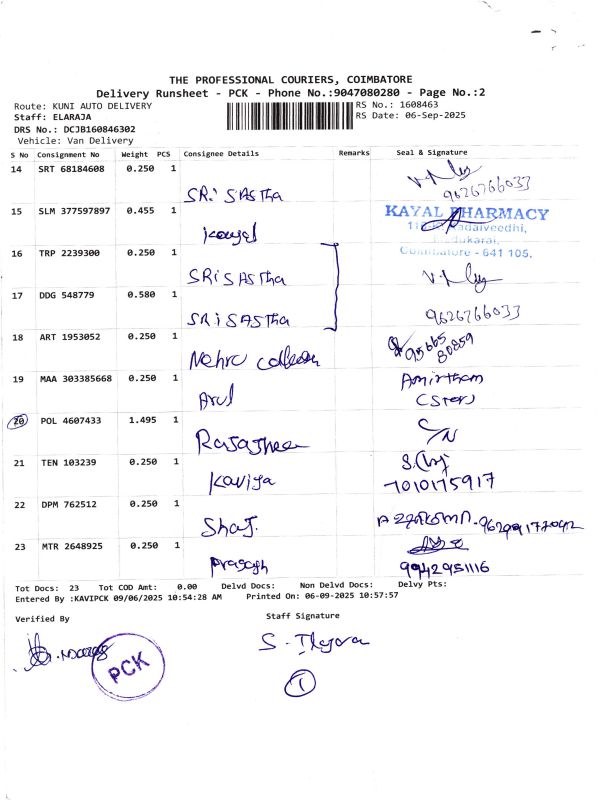 THE PROFESSIONAL COURIERS, COIMBATORE
Delivery Runsheet - PCK - Phone No.:9047080280 - Page No.:2
Route: KUNI AUTO DELIVERY RS No.: 1608463
Staff: ELARAJA RS Date: 06-Sep-2025
DRS No.: DCJB160846302
Vehicle: Van Delivery
S No Consignment No Weight PCS Consignee Details Remarks Seal & Signature
14 SRT 68184608 0.250 1 SRi SASTha 9626766033
15 SLM 377597897 0.455 1 KAYAL PHARMACY
Coimbatore - 641 105.
16 TRP 2239300 0.250 1 SRiSASTha
17 DDG 548779 0.580 1 SRiSASTha 9626766033
18 ART 1953052 0.250 1 Nehru 95665 80859
19 MAA 303385668 0.250 1 Arul Amirtham
20 POL 4607433 1.495 1
21 TEN 103239 0.250 1 Kaviya 7010175917
22 DPM 762512 0.250 1 Shaj.
23 MTR 2648925 0.250 1 9942951116
Tot Docs: 23 Tot COD Amt: 0.00 Delvd Docs: Non Delvd Docs: Delvy Pts:
Entered By :KAVIPCK 09/06/2025 10:54:28 AM Printed On: 06-09-2025 10:57:57
Verified By Staff Signature
PCK
1